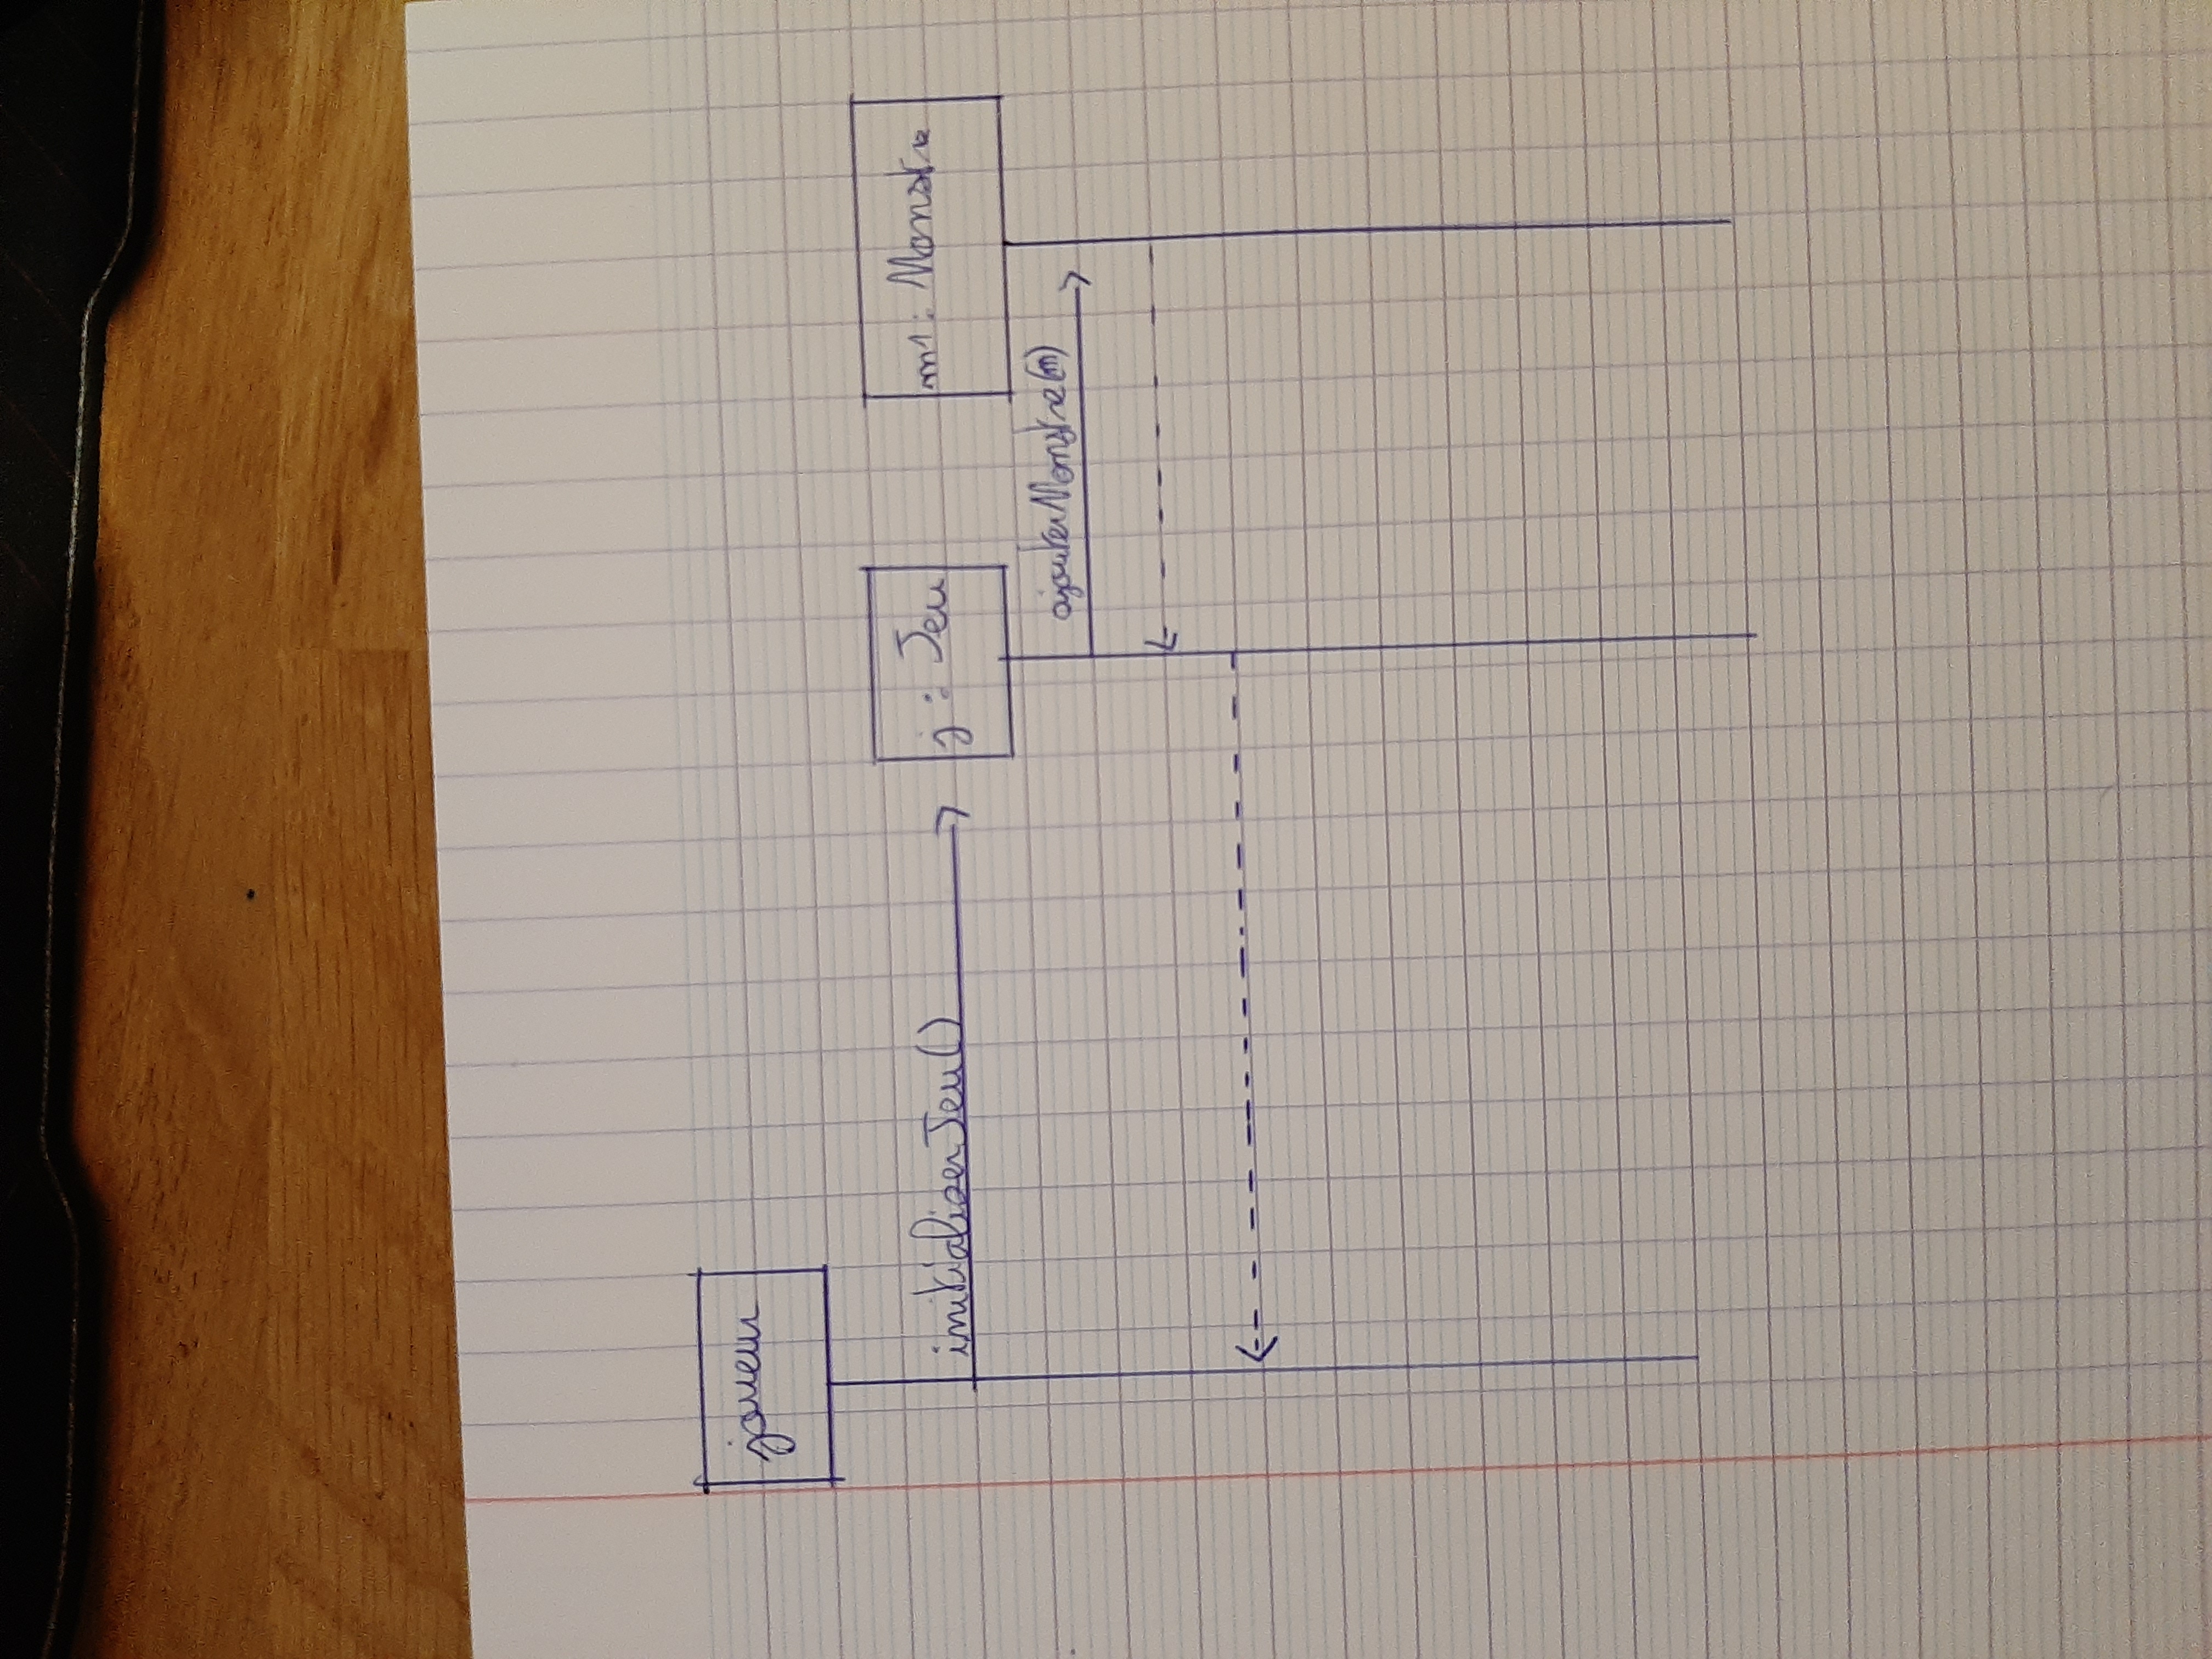 joueur
initialiserJeu()
j : Jeu
m1 : Monstre
ajouterMonstre(m)